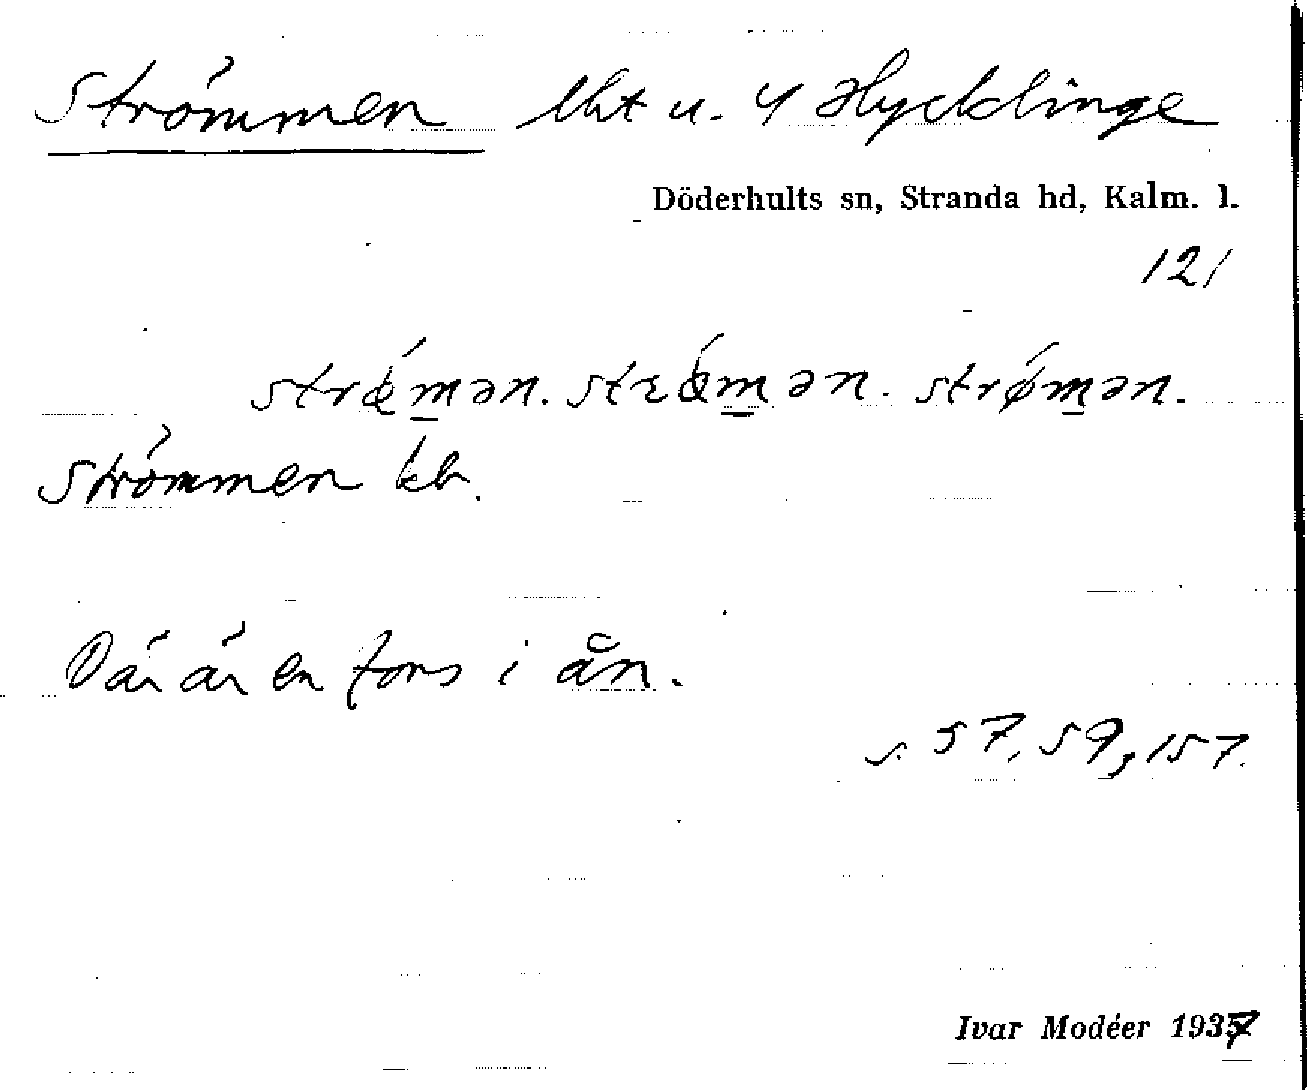 Strömmen lht u. 4 Hycklinge
Döderhults sn, Stranda hd, Kalm. l.
121
strǿmən. strǿmən. strǿmən.
Strömmen kb.
Där är en fors i ån.
s. 57, 59, 157.
Ivar Modéer 1937